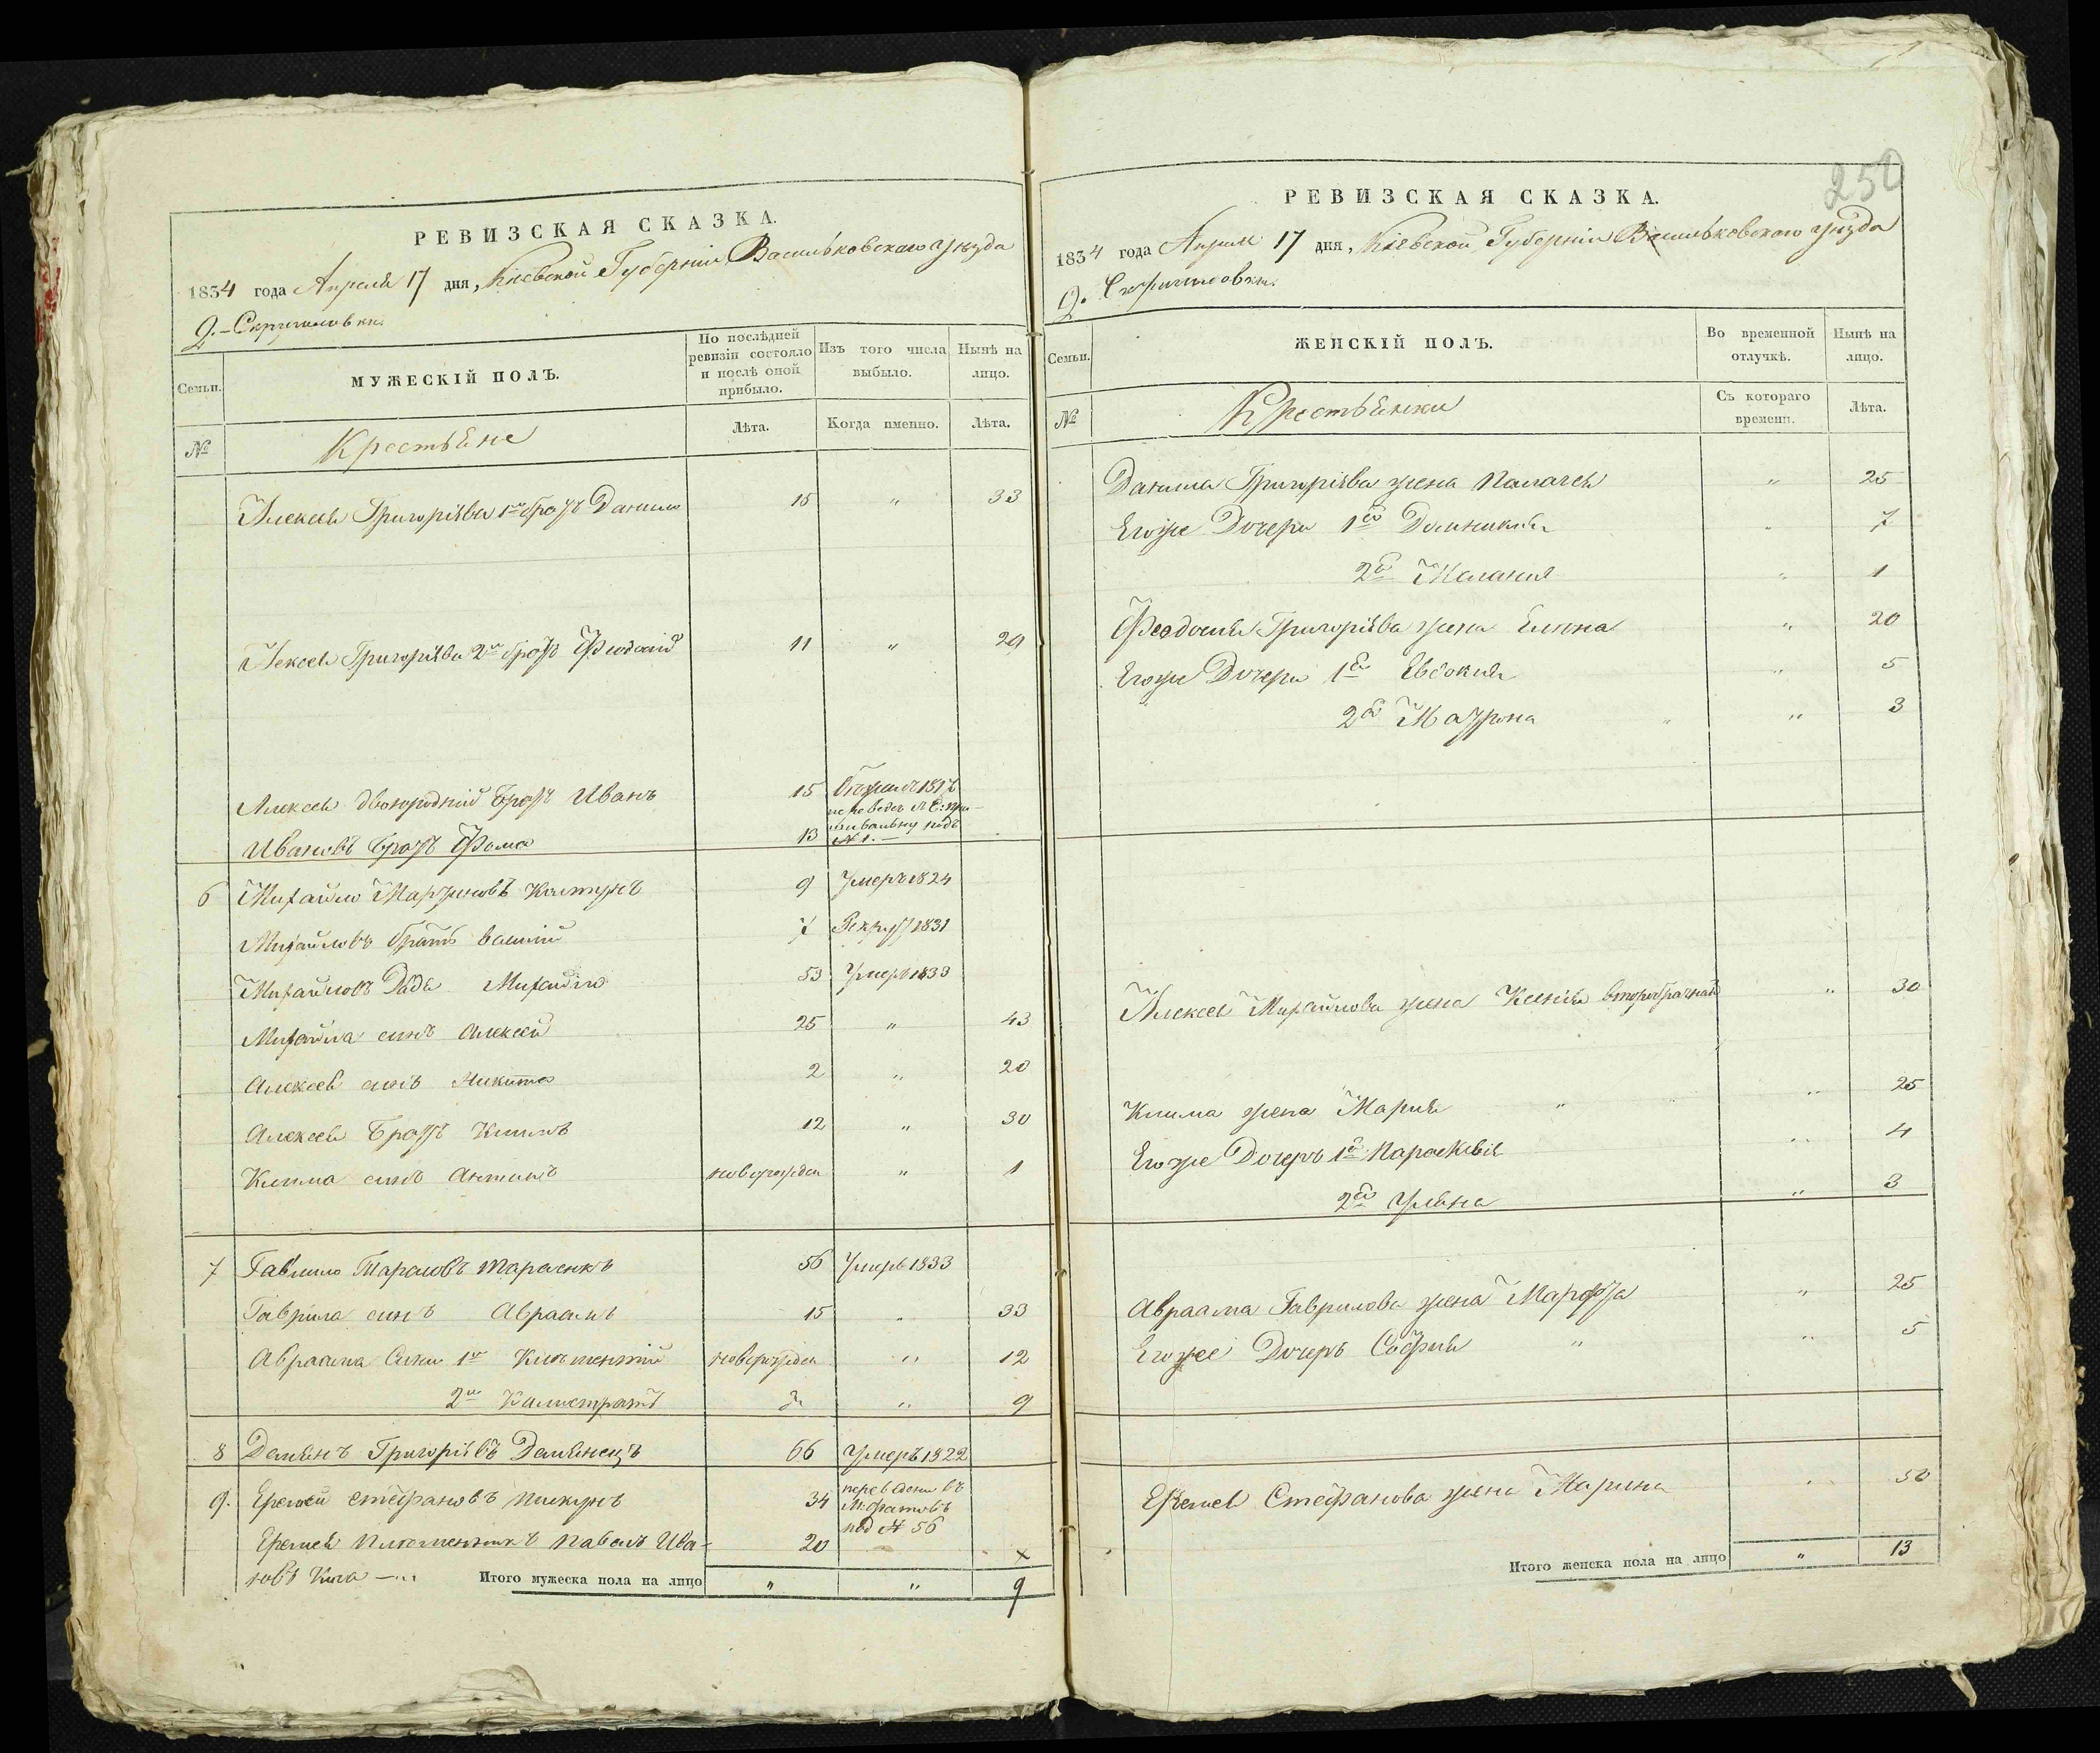 РЕВИЗСКАЯ СКАЗКА.
1834 года Апреля 17 дня, Кіевской Губерніи Васильковскаго уѣзда
Д.
Семьи.
МУЖЕСКІЙ ПОЛЪ.
По послѣдней ревизіи состояло и послѣ оной прибыло.
Изъ того числа выбыло.
Нынѣ на лицо.
№
Крестьяне
Лѣта.
Когда именно.
Лѣта.
Алексея Григоріева 1й братъ Данило 15 " 33
Алексея Григоріева 2й братъ Феодосій 11 " 29
Алексея двоюродній братъ Иванъ 15
Ивановъ братъ Фома 13 № 1.
6 Михайло 9 умеръ 1824
Михайловъ братъ 7 Рекрут 1831
Михайловъ Дядя Михайло 53 умеръ 1833
Михайла синъ Алексей 25 " 43
Алексея синъ Никита 2 " 20
Алексея братъ Климъ 12 " 30
Клима синъ Антинъ новорожден " 1
7 Гаврило Тарасовъ Тарасюкъ 56 умеръ 1833
Гаврила синъ Авраамъ 15 " 33
Авраама Сини 1й Климентій новорожден " 12
2й Калистратъ " 9
8 Демянъ Григоріевъ Демянецъ 66 умеръ 1822
9. Еремей Стефановъ Пискунъ 34 переведен въ
под № 56
Еремея племенникъ Павелъ Ива- 20 ×
новъ
Итого мужеска пола на лицо " " 9
252
РЕВИЗСКАЯ СКАЗКА.
1834 года Апреля 17 дня, Кіевской Губерніи Васильковскаго уѣзда
Д.
Семьи.
ЖЕНСКІЙ ПОЛЪ.
Во временной отлучкѣ.
Нынѣ на лицо.
№
Крестьянки
Съ котораго времени.
Лѣта.
Данила Григоріева жена Палагея " 25
Егоже Дочери 1я Домникія " 7
2я Мелания " 1
Феодосия Григоріева жена Елена " 20
Егоже Дочери 1я Евдокия " 5
2я Матрона " 3
Алексея Михайлова жена Ксенія второбрачная " 30
Клима жена Мария " 25
Егоже Дочерь 1я Параскевія " 4
2я Уляна " 3
Авраама Гаврилова жена Марфа " 25
Егоже Дочерь София " 5
Еремея Стефанова жена Марина " 50
Итого женска пола на лицо " 13